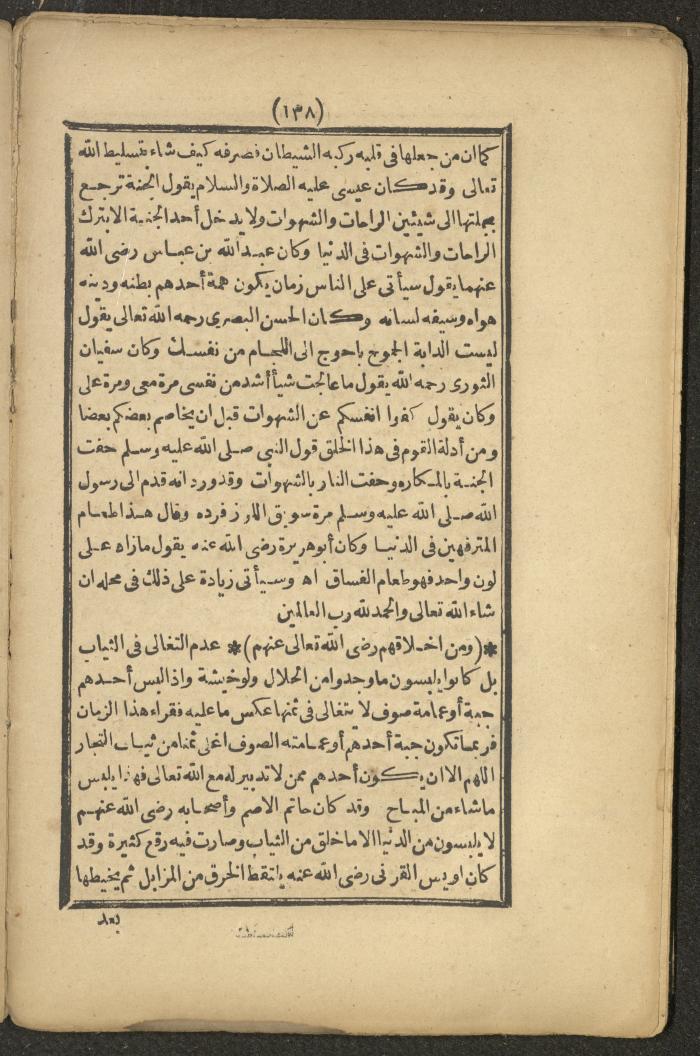 (١٣٨)
كما ان من جعلها فى قلبه ركبه الشيطان فصرفه كيف شاء بتسليط الله
تعالى وقد كان عيسى عليه الصلاة والسلام يقول الجنة ترجع
بجملتها الى شيئين الراحات والشهوات ولا يدخل أحد الجنة الا بترك
الراحات والشهوات فى الدنيا وكان عبد الله بن عباس رضى الله
عنهما يقول سيأتى على الناس زمان يكون همة أحدهم بطنه ودينه
هواه وسيفه لسانه وكان الحسن البصرى رحمه الله تعالى يقول
ليست الدابة الجموح باحوج الى اللجام من نفسك وكان سفيان
الثورى رحمه الله يقول ما عالجت شيأ أشد من نفسى مرة معى ومرة على
وكان يقول كفوا انفسكم عن الشهوات قبل ان يخاصم بعضكم بعضا
ومن أدلة القوم فى هذا الخلق قول النبى صلى الله عليه وسلم حفت
الجنة بالمكاره وحفت النار بالشهوات وقد ورد انه قدم الى رسول
الله صلى الله عليه وسلم مرة سويق اللوز فرده وقال هذا طعام
المترفهين فى الدنيا وكان أبو هريرة رضى الله عنه يقول ما زاد على
لون واحد فهو طعام الفساق اه وسيأتى زيادة على ذلك فى محله ان
شاء الله تعالى والحمد لله رب العالمين
*(ومن اخلاقهم رضى الله تعالى عنهم)* عدم التغالى فى الثياب
بل كانوا يلبسون ما وجدوا من الحلال ولو خيشة واذا لبس أحدهم
جبة أو عمامة صوف لا يتغالى فى ثمنها عكس ما عليه فقراء هذا الزمان
فربما تكون جبة أحدهم أو عمامته الصوف اغلى ثمنا من ثياب التجار
اللهم الا ان يكون أحدهم ممن لا تدبير له مع الله تعالى فهذا يلبس
ما شاء من المباح وقد كان حاتم الاصم وأصحابه رضى الله عنهم
لا يلبسون من الدنيا الا ما خلق من الثياب وصارت فيه رقع كثيرة وقد
كان اويس القرنى رضى الله عنه يلتقط الخرق من المزابل ثم يخيطها
بعد